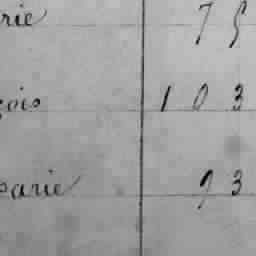 rie 75
çois 103
parie 93